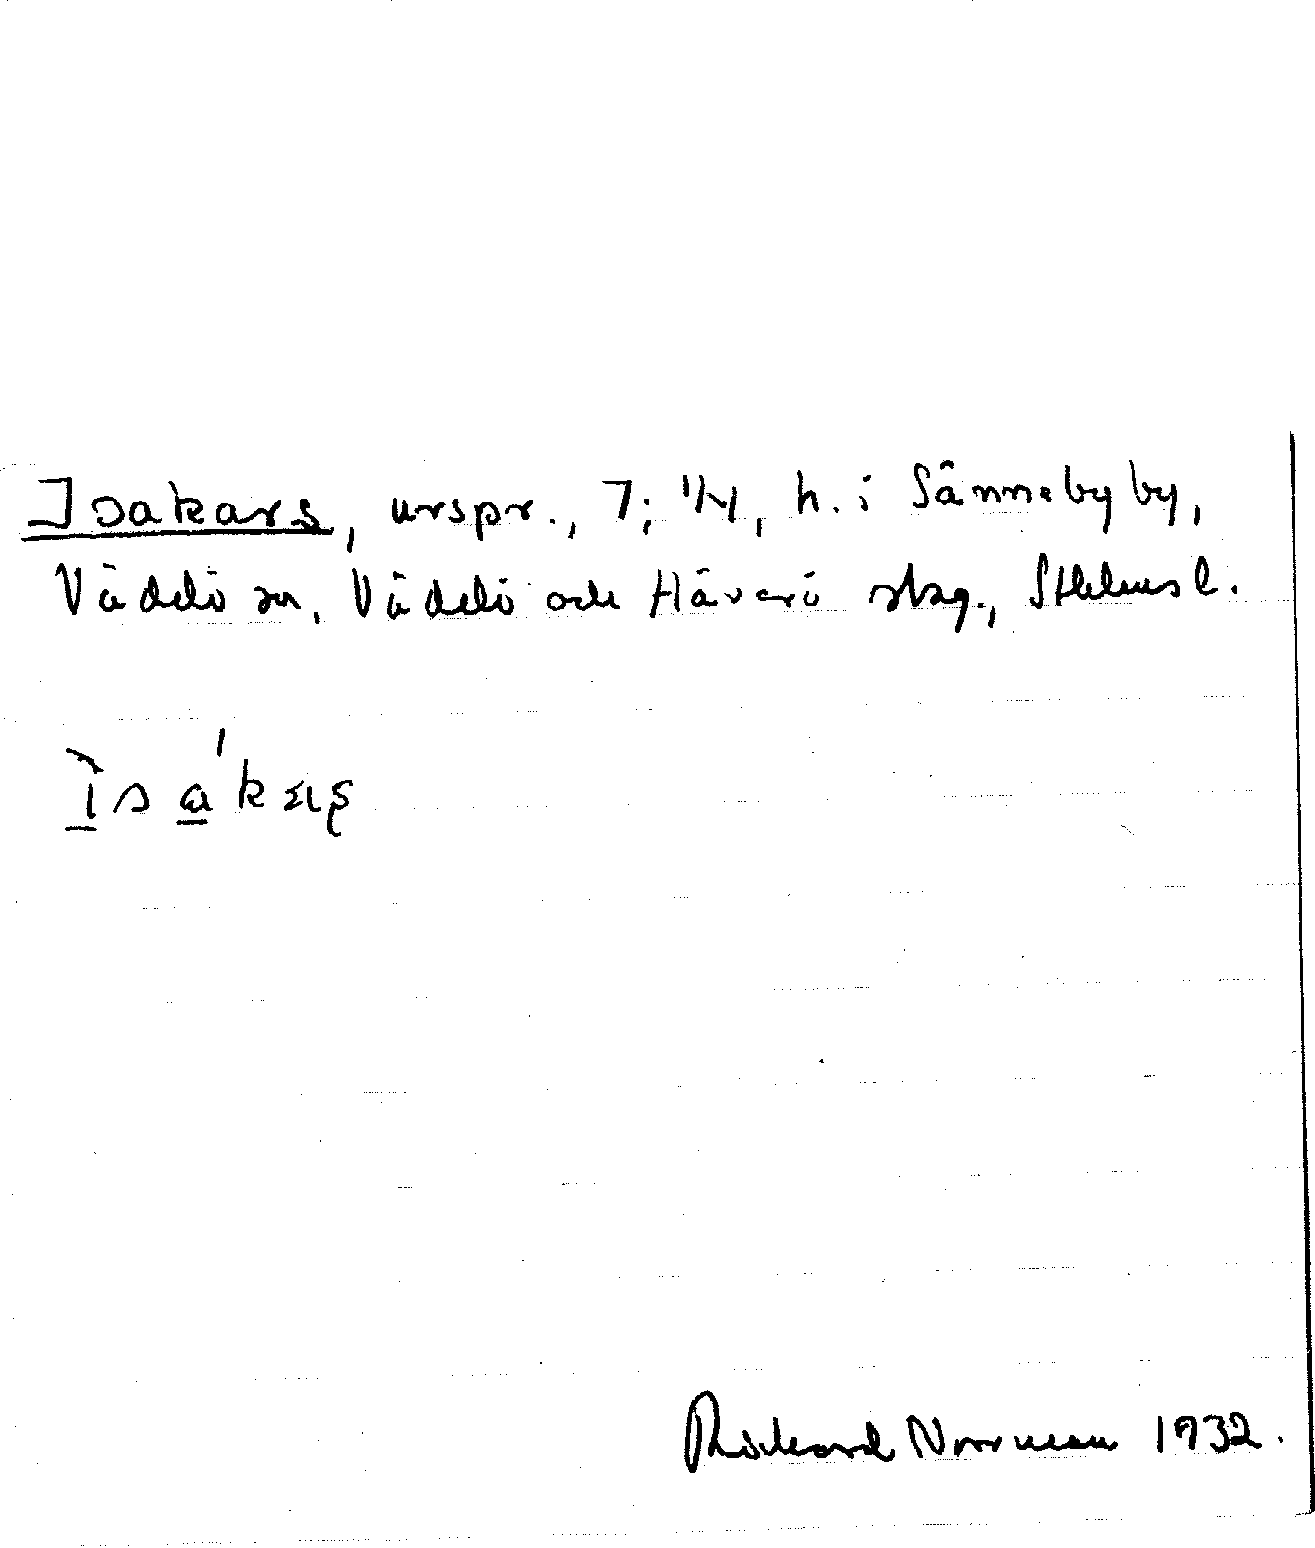 Isakars, urspr., 7; 1/4, h. i Sänneby by,
Väddö sn, Väddö och Häverö skg., Sthlmsl.
Rickard Norrman 1932.